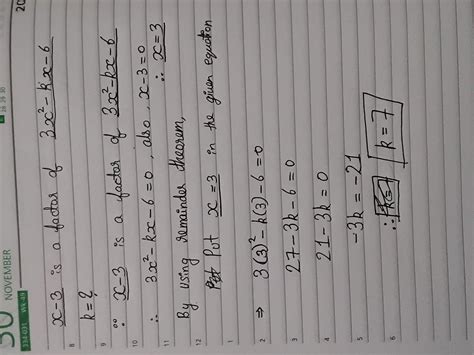 30 NOVEMBER
334-031 Wk-49
x-3 is a factor of 3x²-kx-6
8 k=?
9 ∵ x-3 is a factor of 3x²-kx-6
10 ∴ 3x²-kx-6=0, also, x-3=0
11 ∴ x=3
By using remainder theorem,
12 Put x=3 in the given equation
1
2 ⇒ 3(3)²-k(3)-6=0
3 27-3k-6=0
4 21-3k=0
5 -3k=-21
6 ∴ k=7